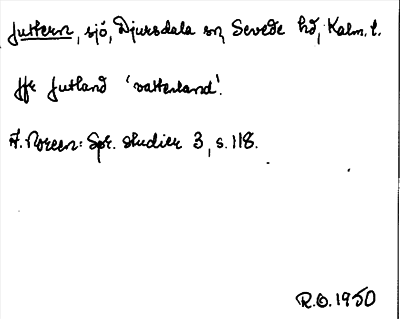 Juttern, sjö, Djursdala sn, Sevede hd, Kalm. l.
Jfr Jutland 'vattenland'.
A. Noreen: Spr. studier 3, s. 118.
R.O. 1950